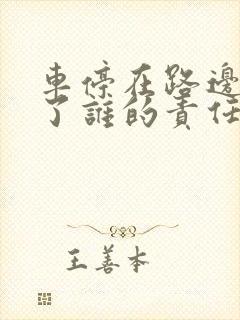 車停在路邊
了誰的責任
王善本